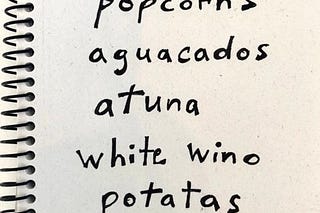 popcorns
aguacados
atuna
white wino
potatas